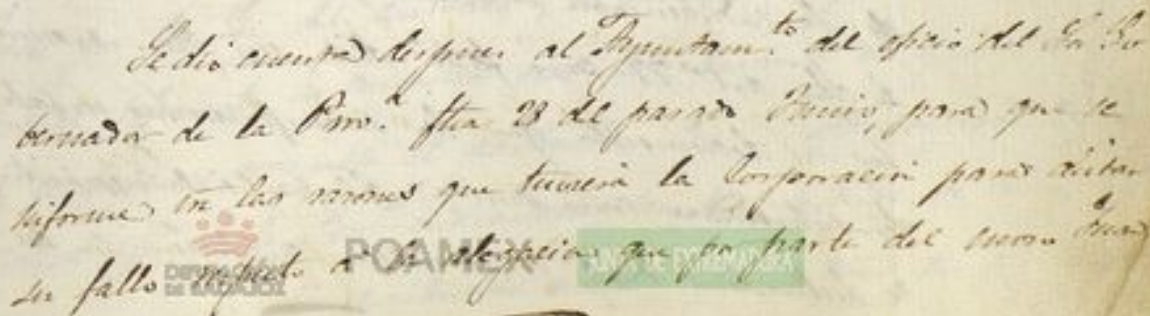 Se dió cuenta despues al Ayuntam.to del oficio del Sor Go
bernador de la Prov.a fha 28 del pasado Junio, para que se
informe en las razones que tuviera la Corporacion para dictar
su fallo respecto a la alegacion que por parte del mozo Juan
DIPUTACIÓN
DE BADAJOZ
POAMEX
JUNTA DE EXTREMADURA